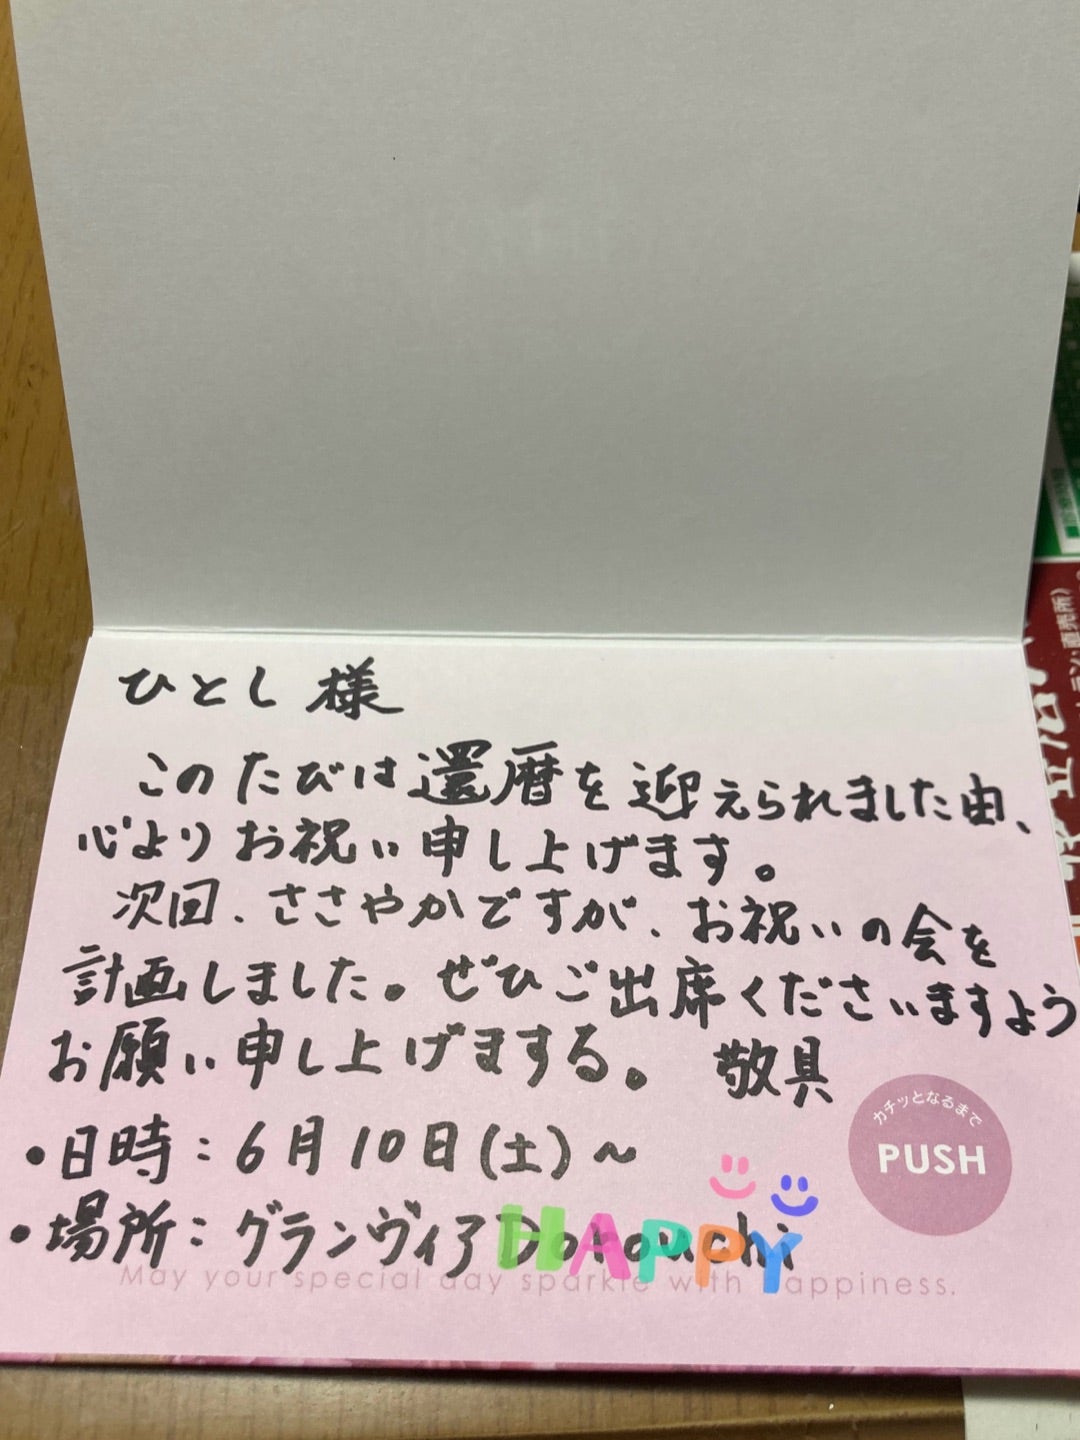 ひとし 様
このたびは還暦を迎えられました由、
心よりお祝い申し上げます。
次回、ささやかですが、お祝いの会を
計画しました。ぜひご出席くださいますよう
お願い申し上げまする。 敬具
・日時：6月10日(土)～
・場所：グランヴィア
HAPPY
カチッとなるまで
PUSH
May your special day sparkle with happiness.
直売所)